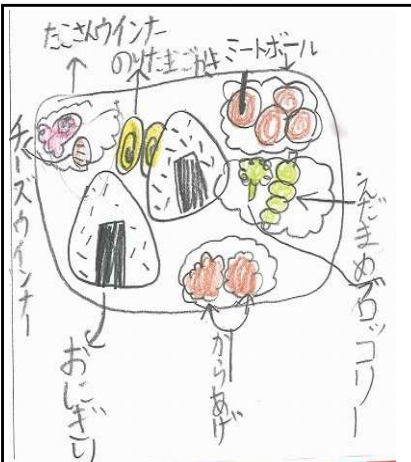 たこさんウインナー
のりたまごやき
ミートボール
チーズウインナー
えだまめ
ブロッコリー
おにぎり
からあげ